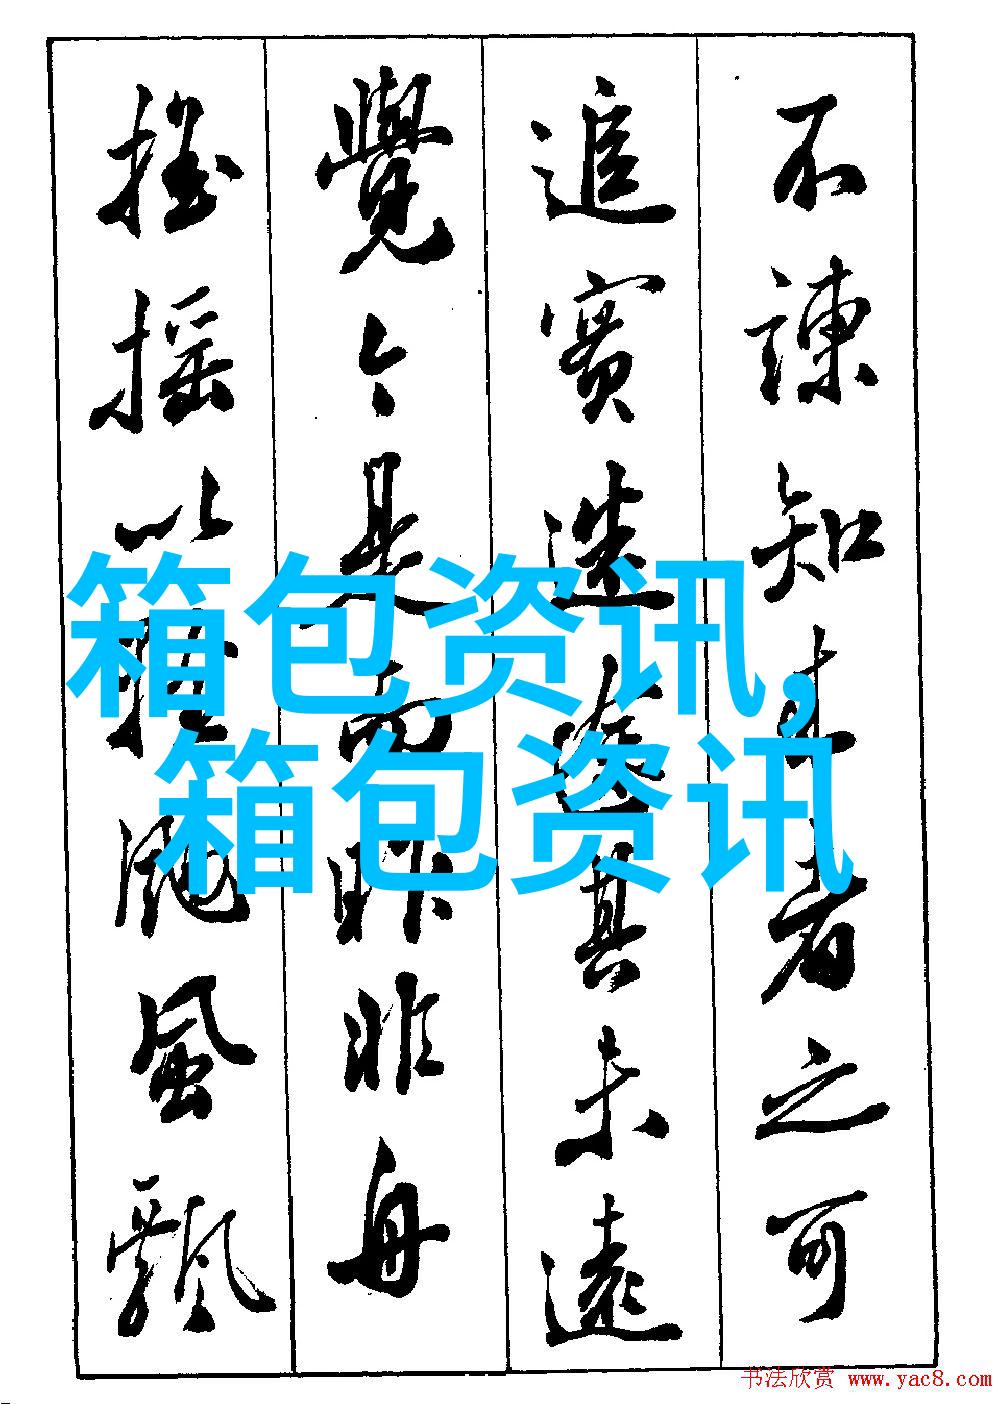 不諫知来者之可
追實迷途其未遠
覺今是而昨非舟
摇摇以輕颺風飄
箱包资讯,
箱包资讯
书法欣赏 www.yac8.com